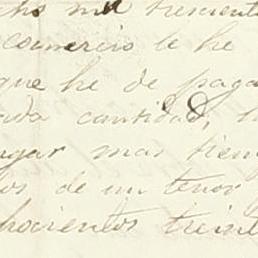 cho mil trescient
comercio le he
que he de paga
ada cantidad, s
ugar mas tiem
os de un tenor
hocientos treint